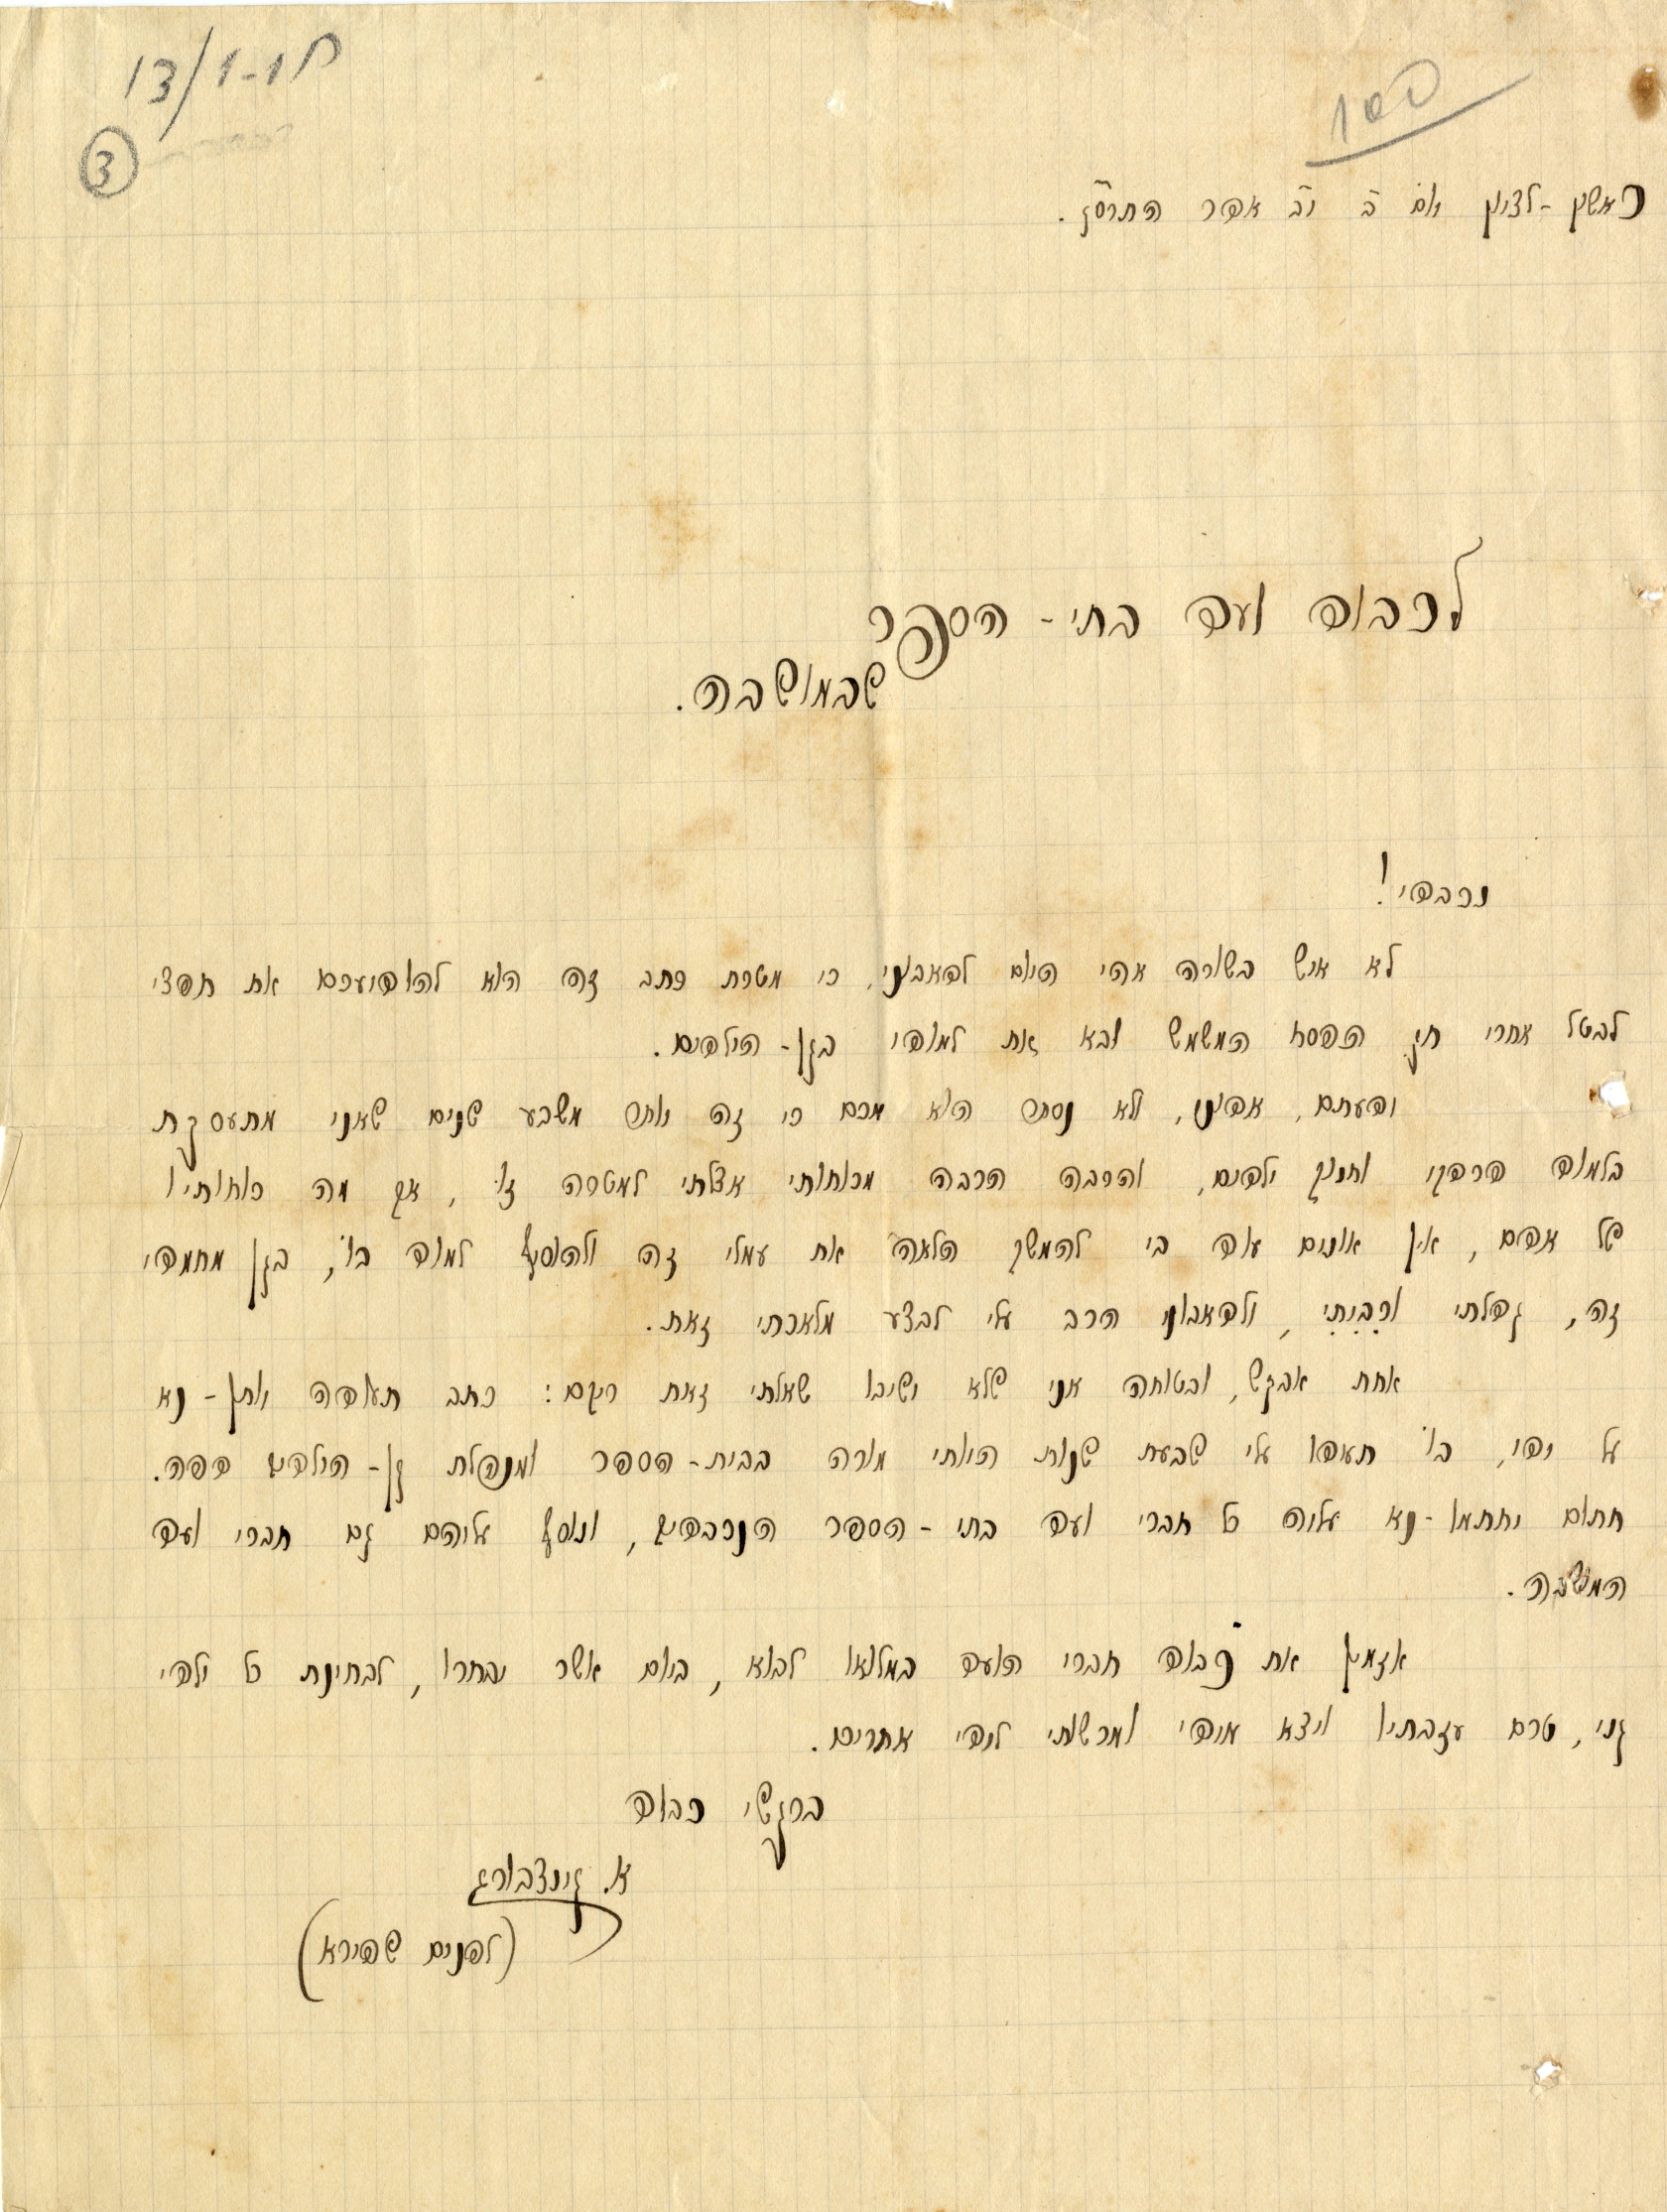 ח-1-1/13
3
100
ראשון-לציון יום ב׳ י״ב אדר התרס״ג.
לכבוד ועד בתי-הספר
שבמושבה.
נכבדי!
לא איש בשורה אהי היום לדאבוני, כי מטרת כתב זה היא להודיעכם את חפצי
לבטל אחרי חג הפסח המשמש ובא את למודי בגן-הילדים.
ידעתם, אדוני, ולא נסתר הוא מכם כי זה יותר משבע שנים שאני מתעסקת
בלמוד דרדקי וחנוך ילדים, והרבה הרבה מכוחותי אצלתי למטרה זו, אך מה כוחותיו
של אדם, אין אונים עוד בי להמשך הלאה את עמלי זה ולהוסיף למוד בו, בגן מחמדי
זה, גדלתי ורביתי, ולדאבוני הרב עלי לבצע מלאכתי זאת.
אחת אבקש, ובטוחה אני שלא ישיבו שאלתי זאת ריקם: כתב תעודה יותן-נא
על ידי, בו תעידו עלי שבעת שנות היותי מורה בבית-הספר ומנהלת גן-הילדים דפה.
חתום יחתמו-נא עליה כל חברי ועד בתי-הספר הנכבדים, ונוסף עליהם גם חברי ועד
המושבה.
אזמין את כבוד חברי הועד במלואו לבוא, ביום אשר יבחרו, לבחינת כל ילדי
גני, טרם עזבתיו ויצא מידי ומרשותי לידי אחרים.
ברגשי כבוד
א. גינצבורג
(לפנים שפירא)